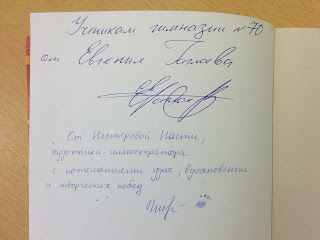 Ученикам гимназии № 70
от Евгения Гаглоева
От Нестеровой Насти,
художника-иллюстратора
с пожеланиями удач, вдохновения
и творческих побед